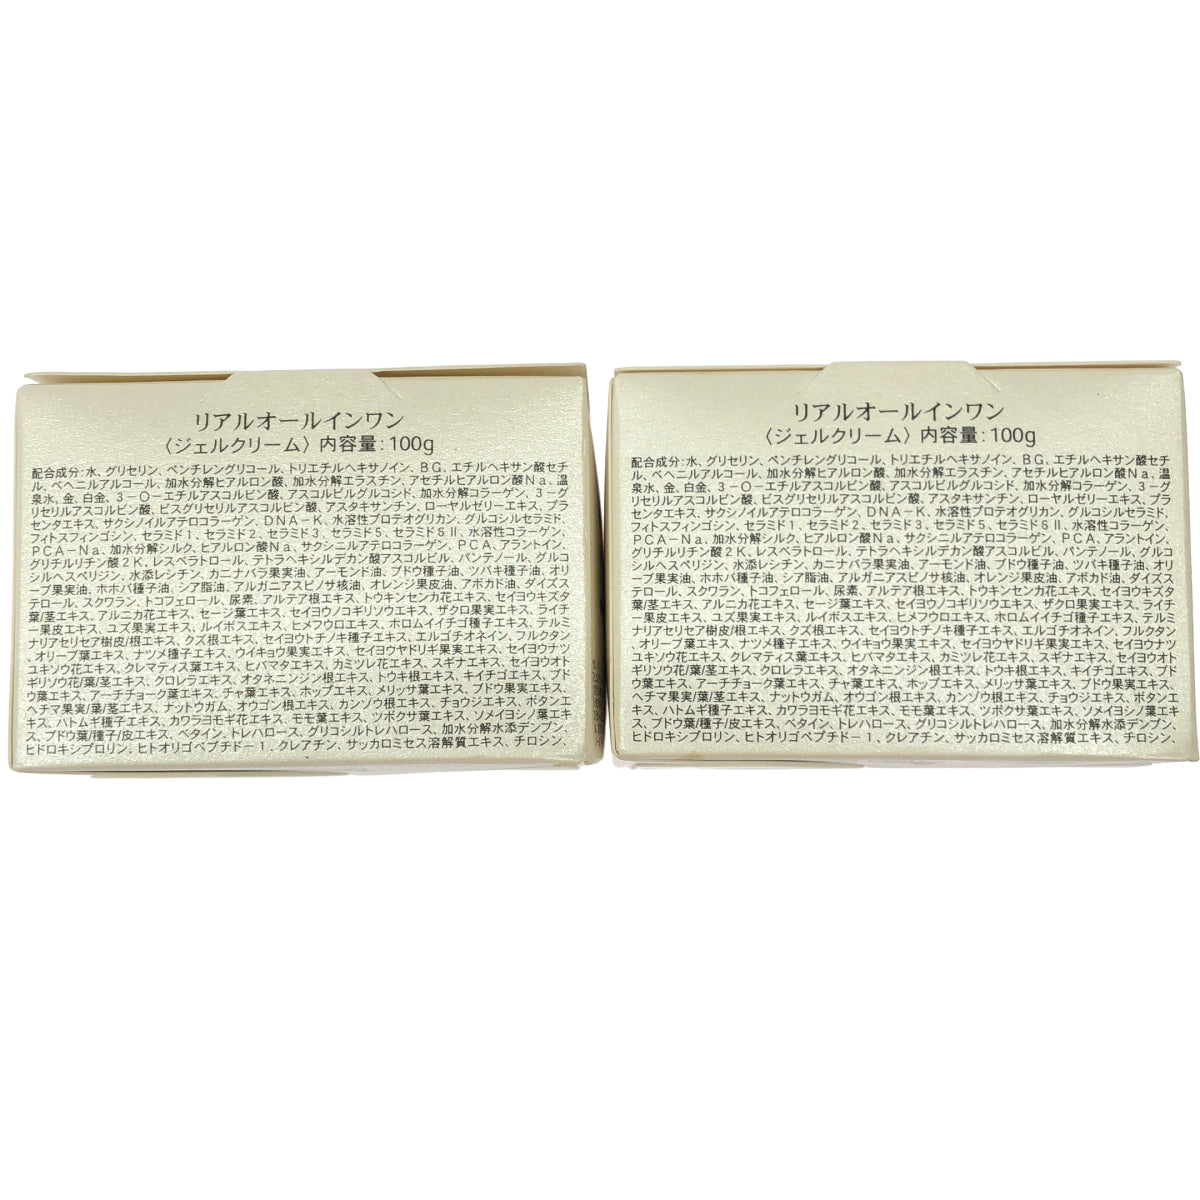 リアルオールインワン
〈ジェルクリーム〉内容量:100g
配合成分:水、グリセリン、ペンチレングリコール、トリエチルヘキサノイン、BG、エチルヘキサン酸セチ
ル、ベヘニルアルコール、加水分解ヒアルロン酸、加水分解エラスチン、アセチルヒアルロン酸Na、温
泉水、金、白金、3-O-エチルアスコルビン酸、アスコルビルグルコシド、加水分解コラーゲン、3-グ
リセリルアスコルビン酸、ビスグリセリルアスコルビン酸、アスタキサンチン、ローヤルゼリーエキス、プラ
センタエキス、サクシノイルアテロコラーゲン、DNA-K、水溶性プロテオグリカン、グルコシルセラミド、
フィトスフィンゴシン、セラミド1、セラミド2、セラミド3、セラミド5、セラミド6II、水溶性コラーゲン、
PCA-Na、加水分解シルク、ヒアルロン酸Na、サクシニルアテロコラーゲン、PCA、アラントイン、
グリチルリチン酸2K、レスベラトロール、テトラヘキシルデカン酸アスコルビル、パンテノール、グルコ
シルヘスペリジン、水添レシチン、カニナバラ果実油、アーモンド油、ブドウ種子油、ツバキ種子油、オリ
ーブ果実油、ホホバ種子油、シア脂油、アルガニアスピノサ核油、オレンジ果皮油、アボカド油、ダイズス
テロール、スクワラン、トコフェロール、尿素、アルテア根エキス、トウキンセンカ花エキス、セイヨウキズタ
葉/茎エキス、アルニカ花エキス、セージ葉エキス、セイヨウノコギリソウエキス、ザクロ果実エキス、ライチ
ー果皮エキス、ユズ果実エキス、ルイボスエキス、ヒメフウロエキス、ホロムイイチゴ種子エキス、テルミ
ナリアセリセア樹皮/根エキス、クズ根エキス、セイヨウトチノキ種子エキス、エルゴチオネイン、フルクタン
、オリーブ葉エキス、ナツメ種子エキス、ウイキョウ果実エキス、セイヨウヤドリギ果実エキス、セイヨウナツ
ユキソウ花エキス、クレマティス葉エキス、ヒバマタエキス、カミツレ花エキス、スギナエキス、セイヨウオト
ギリソウ花/葉/茎エキス、クロレラエキス、オタネニンジン根エキス、トウキ根エキス、キイチゴエキス、ブド
ウ葉エキス、アーチチョーク葉エキス、チャ葉エキス、ホップエキス、メリッサ葉エキス、ブドウ果実エキス、
ヘチマ果実/葉/茎エキス、ナットウガム、オウゴン根エキス、カンゾウ根エキス、チョウジエキス、ボタンエ
キス、ハトムギ種子エキス、カワラヨモギ花エキス、モモ葉エキス、ツボクサ葉エキス、ソメイヨシノ葉エキ
ス、ブドウ葉/種子/皮エキス、ベタイン、トレハロース、グリコシルトレハロース、加水分解水添デンプン、
ヒドロキシプロリン、ヒトオリゴペプチド-1、クレアチン、サッカロミセス溶解質エキス、チロシン、
リアルオールインワン
〈ジェルクリーム〉内容量:100g
配合成分:水、グリセリン、ペンチレングリコール、トリエチルヘキサノイン、BG、エチルヘキサン酸セチ
ル、ベヘニルアルコール、加水分解ヒアルロン酸、加水分解エラスチン、アセチルヒアルロン酸Na、温
泉水、金、白金、3-O-エチルアスコルビン酸、アスコルビルグルコシド、加水分解コラーゲン、3-グ
リセリルアスコルビン酸、ビスグリセリルアスコルビン酸、アスタキサンチン、ローヤルゼリーエキス、プラ
センタエキス、サクシノイルアテロコラーゲン、DNA-K、水溶性プロテオグリカン、グルコシルセラミド、
フィトスフィンゴシン、セラミド1、セラミド2、セラミド3、セラミド5、セラミド6II、水溶性コラーゲン、
PCA-Na、加水分解シルク、ヒアルロン酸Na、サクシニルアテロコラーゲン、PCA、アラントイン、
グリチルリチン酸2K、レスベラトロール、テトラヘキシルデカン酸アスコルビル、パンテノール、グルコ
シルヘスペリジン、水添レシチン、カニナバラ果実油、アーモンド油、ブドウ種子油、ツバキ種子油、オリ
ーブ果実油、ホホバ種子油、シア脂油、アルガニアスピノサ核油、オレンジ果皮油、アボカド油、ダイズス
テロール、スクワラン、トコフェロール、尿素、アルテア根エキス、トウキンセンカ花エキス、セイヨウキズタ
葉/茎エキス、アルニカ花エキス、セージ葉エキス、セイヨウノコギリソウエキス、ザクロ果実エキス、ライチ
ー果皮エキス、ユズ果実エキス、ルイボスエキス、ヒメフウロエキス、ホロムイイチゴ種子エキス、テルミ
ナリアセリセア樹皮/根エキス、クズ根エキス、セイヨウトチノキ種子エキス、エルゴチオネイン、フルクタン
、オリーブ葉エキス、ナツメ種子エキス、ウイキョウ果実エキス、セイヨウヤドリギ果実エキス、セイヨウナツ
ユキソウ花エキス、クレマティス葉エキス、ヒバマタエキス、カミツレ花エキス、スギナエキス、セイヨウオト
ギリソウ花/葉/茎エキス、クロレラエキス、オタネニンジン根エキス、トウキ根エキス、キイチゴエキス、ブド
ウ葉エキス、アーチチョーク葉エキス、チャ葉エキス、ホップエキス、メリッサ葉エキス、ブドウ果実エキス、
ヘチマ果実/葉/茎エキス、ナットウガム、オウゴン根エキス、カンゾウ根エキス、チョウジエキス、ボタンエ
キス、ハトムギ種子エキス、カワラヨモギ花エキス、モモ葉エキス、ツボクサ葉エキス、ソメイヨシノ葉エキ
ス、ブドウ葉/種子/皮エキス、ベタイン、トレハロース、グリコシルトレハロース、加水分解水添デンプン、
ヒドロキシプロリン、ヒトオリゴペプチド-1、クレアチン、サッカロミセス溶解質エキス、チロシン、